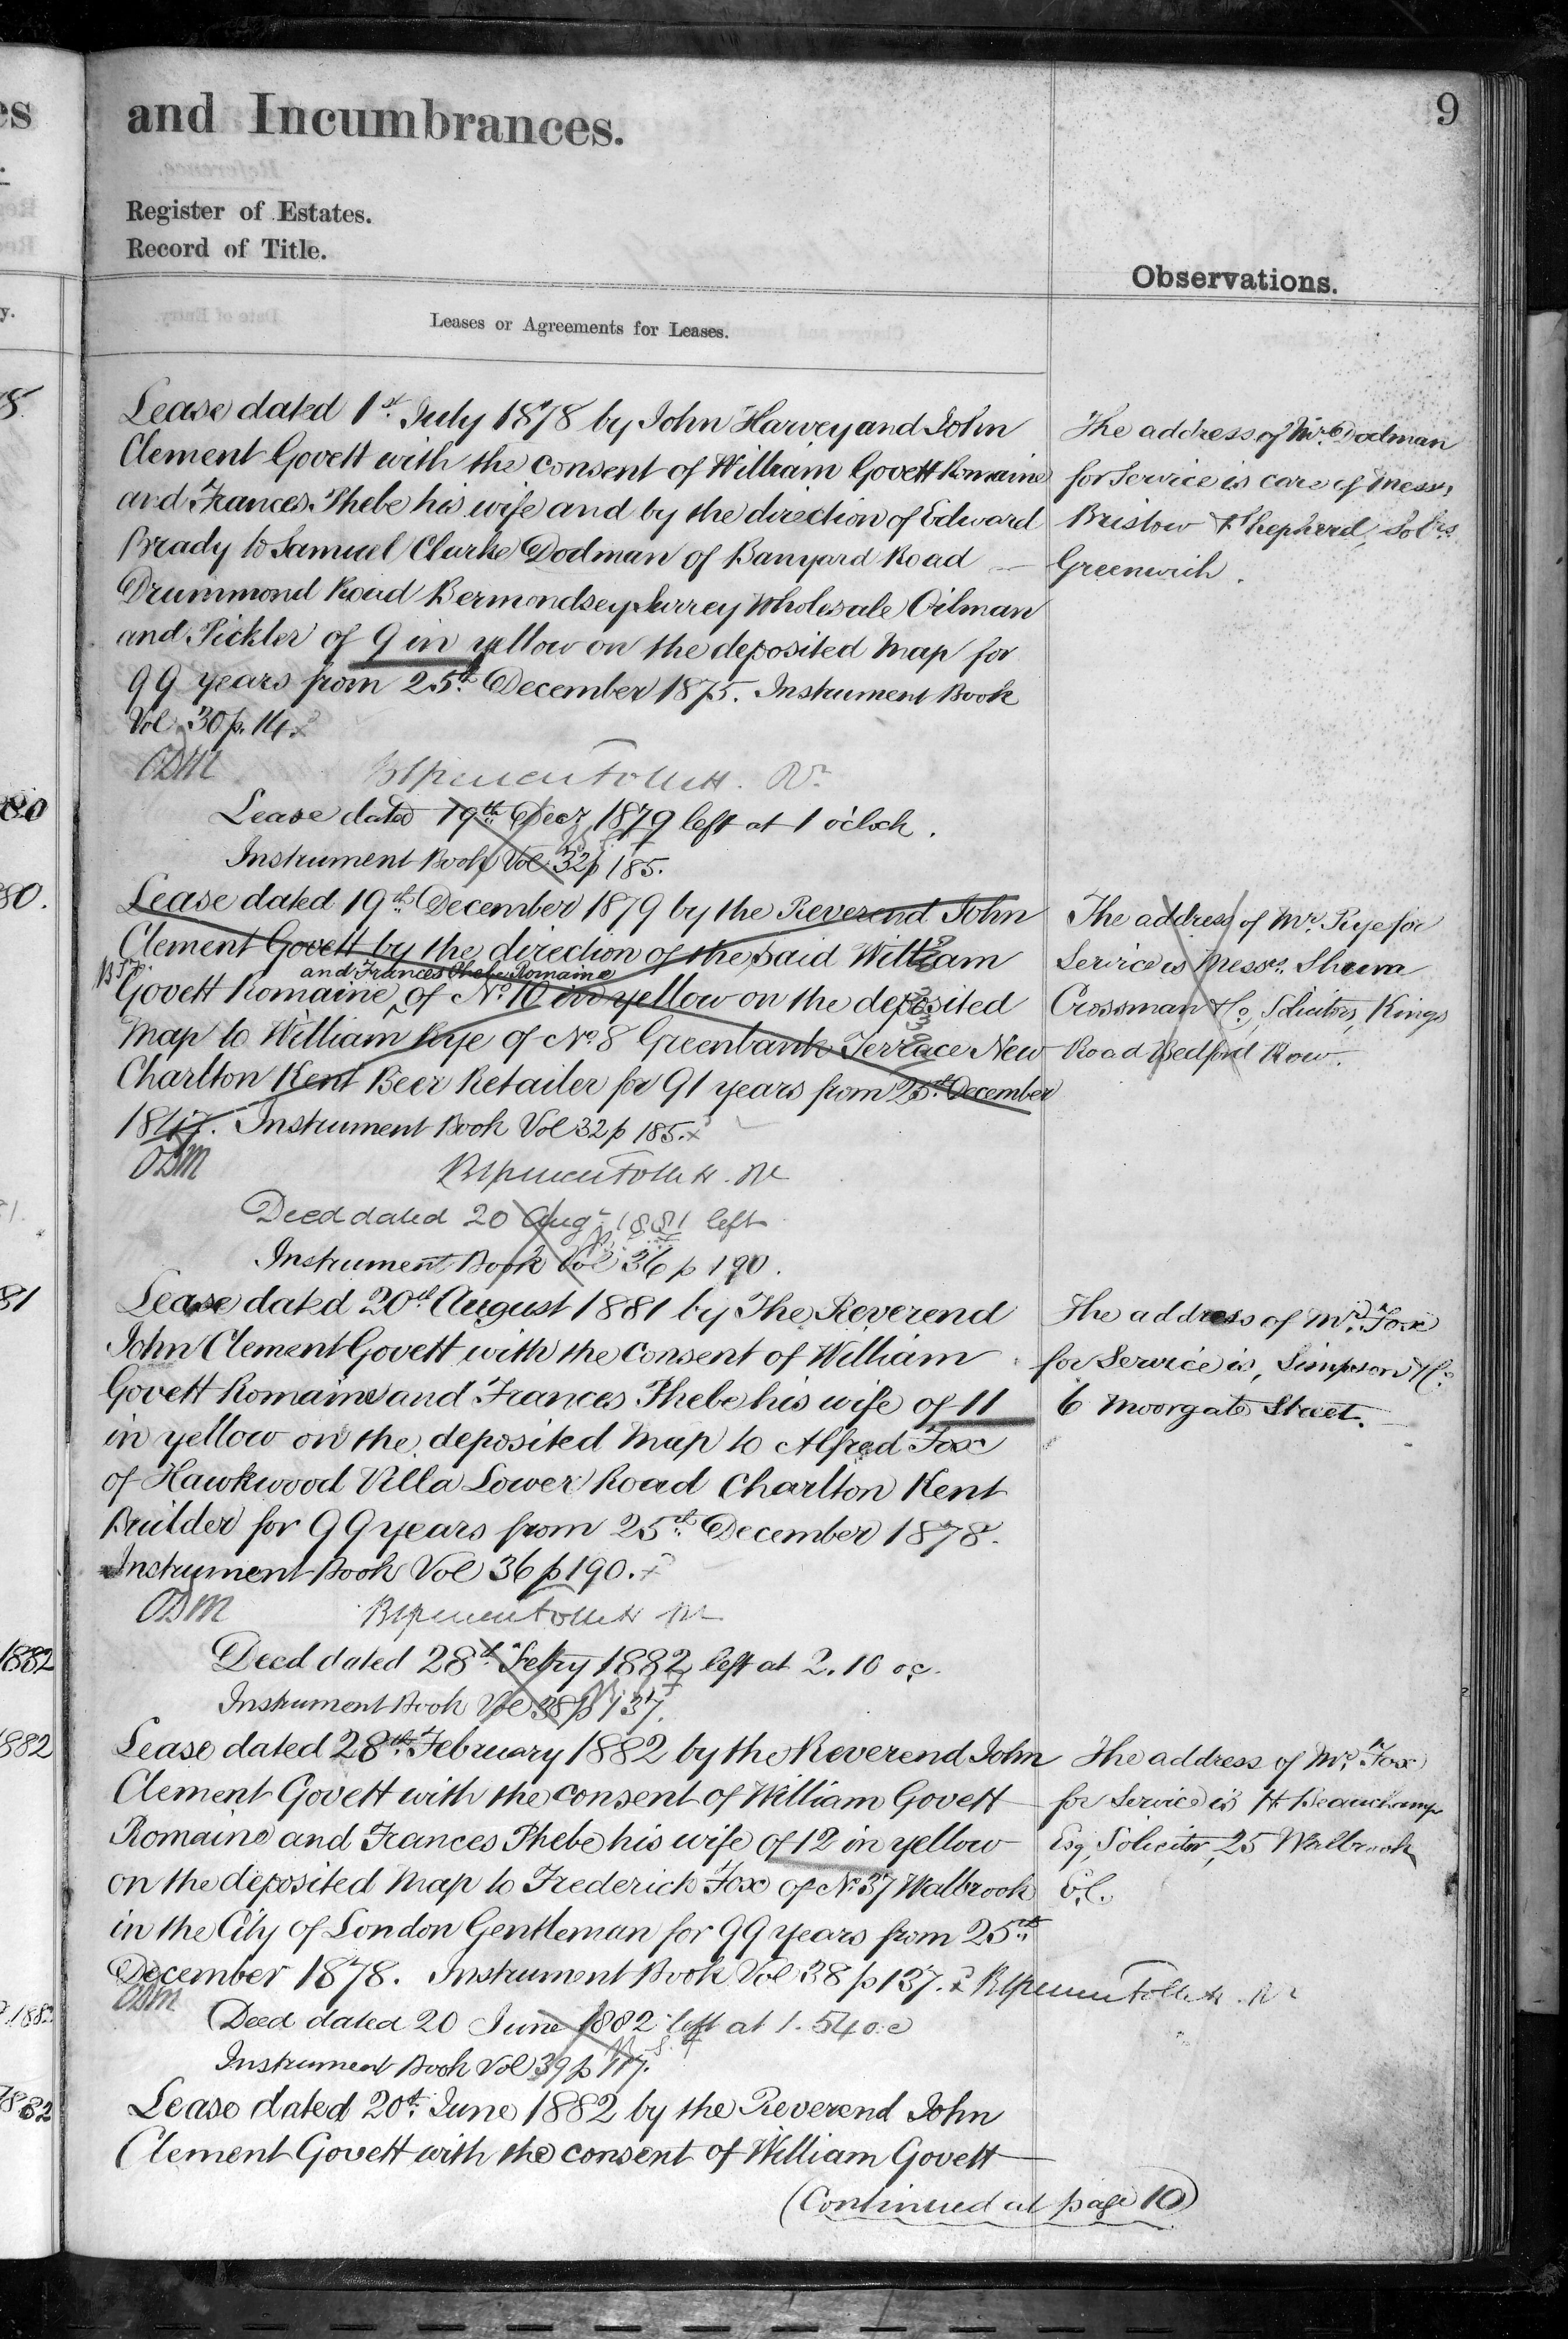 and Incumbrances.
9
Register of Estates.
Record of Title.
Observations.
Leases or Agreements for Leases.
Lease dated 1st July 1878 by John Harvey and John
Clement Govett with the consent of William Govett Romaine
and Frances Phebe his wife and by the direction of Edward
Brady to Samuel Clarke Dodman of Banyard Road
Drummond Road Bermondsey Surrey Wholesale Oilman
and Pickler of 9 in yellow on the deposited Map for
99 years from 25th December 1875. Instrument Book
Vol 30 p. 14.
The address of Mr Dodman
for Service is care of Messrs
Bristow & Shepherd, Solrs
Greenwich.
Lease dated 19th Decr 1879 left at 1 o'clock.
Instrument Book Vol 32 p 185.
Lease dated 19th December 1879 by the Reverend John
Clement Govett by the direction of the said William
and Frances Phebe Romaine
Govett Romaine of No 10 in yellow on the deposited
Map to William Rye of No 8 Greenbank Terrace New
Charlton Kent Beer Retailer for 91 years from 25th December
1847. Instrument Book Vol 32 p 185.
The address of Mr. Rye for
Service is Messrs. Shum
Crossman & Co, Solicitors, Kings
Road Bedford Row.
Deed dated 20 Augt 1881 left
Instrument Book Vol 36 p 190.
Lease dated 20th August 1881 by The Reverend
John Clement Govett with the consent of William
Govett Romaine and Frances Phebe his wife of 11
in yellow on the deposited Map to Alfred Fox
of Hawkwood Villa Lower Road Charlton Kent
Builder for 99 years from 25th December 1878.
Instrument Book Vol 36 p 190.
The address of Mr. Fox
for Service is, Simpson & Co
6 Moorgate Street.
Deed dated 28th Febry 1882 left at 2.10 oc.
Instrument Book Vol 38 p 137.
Lease dated 28th February 1882 by the Reverend John
Clement Govett with the consent of William Govett
Romaine and Frances Phebe his wife of 12 in yellow
on the deposited Map to Frederick Fox of No 37 Walbrook
in the City of London Gentleman for 99 years from 25th
December 1878. Instrument Book Vol 38 p 137.
The address of Mr. Fox
for Service is H Beauchamp
Esq, Solicitor, 25 Walbrook
E.C.
Deed dated 20 June 1882 left at 1.54 o.c
Instrument Book Vol 39 p 117.
Lease dated 20th June 1882 by the Reverend John
Clement Govett with the consent of William Govett
(Continued at page 10)